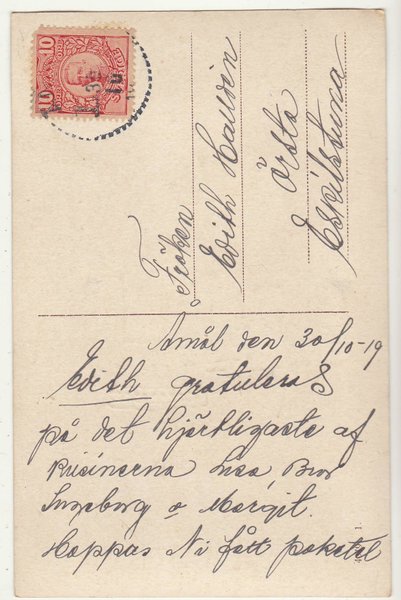 10 10
SVERIGE
Fröken
Edith Halldin
Örsta
Eskilstuna
Åmål den 30/10-19
Edith gratuleras
på det hjärtligaste af
kusinerna Bror
Ingeborg o Margit.
Hoppas Ni fått paketet